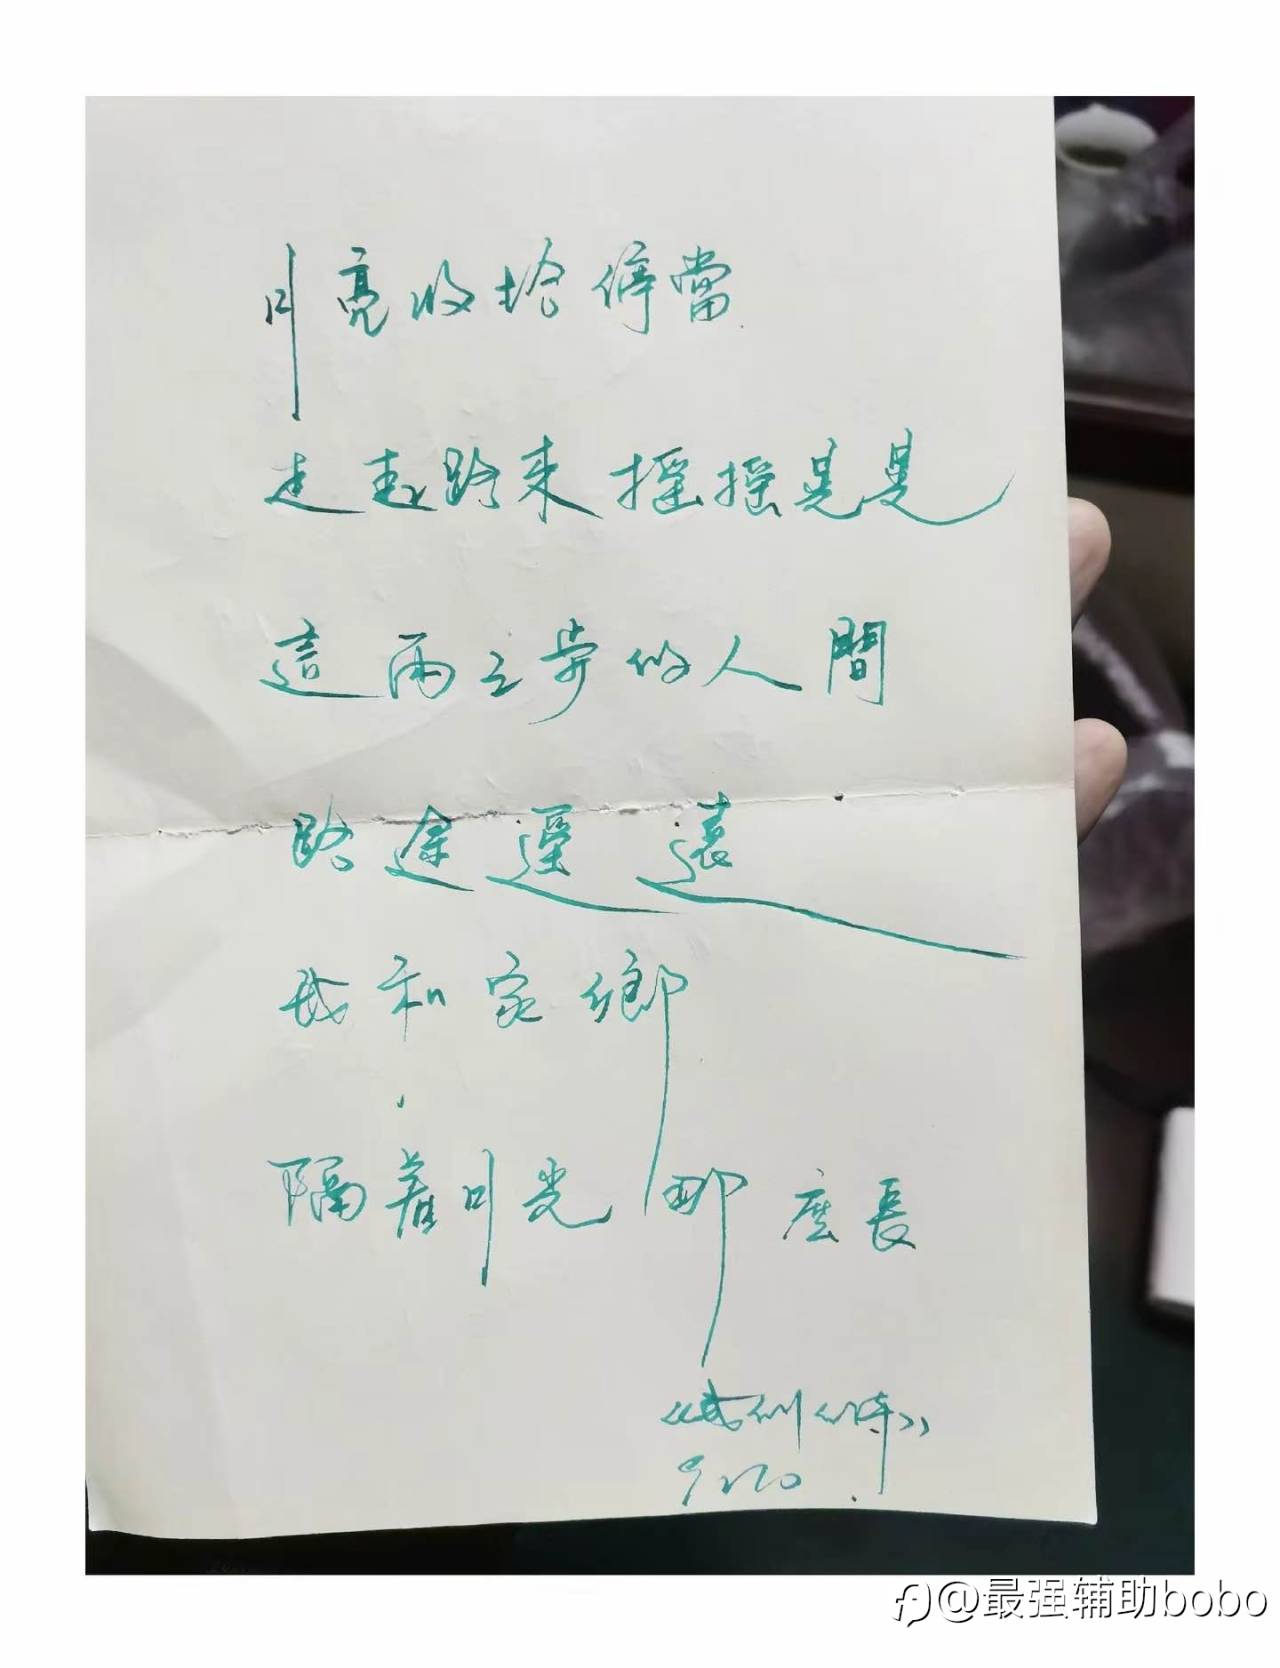 月亮收拾停當
走起路來搖搖晃晃
這兩三步的人間
路途遥遠
我和家鄉
隔着月光那麼長
@最强辅助bobo